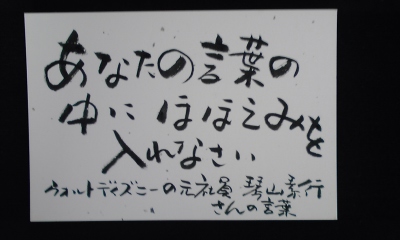 あなたの言葉の
中に ほほえみを
入れなさい
ウォルトディズニーの元社員 琴山素行
さんの言葉